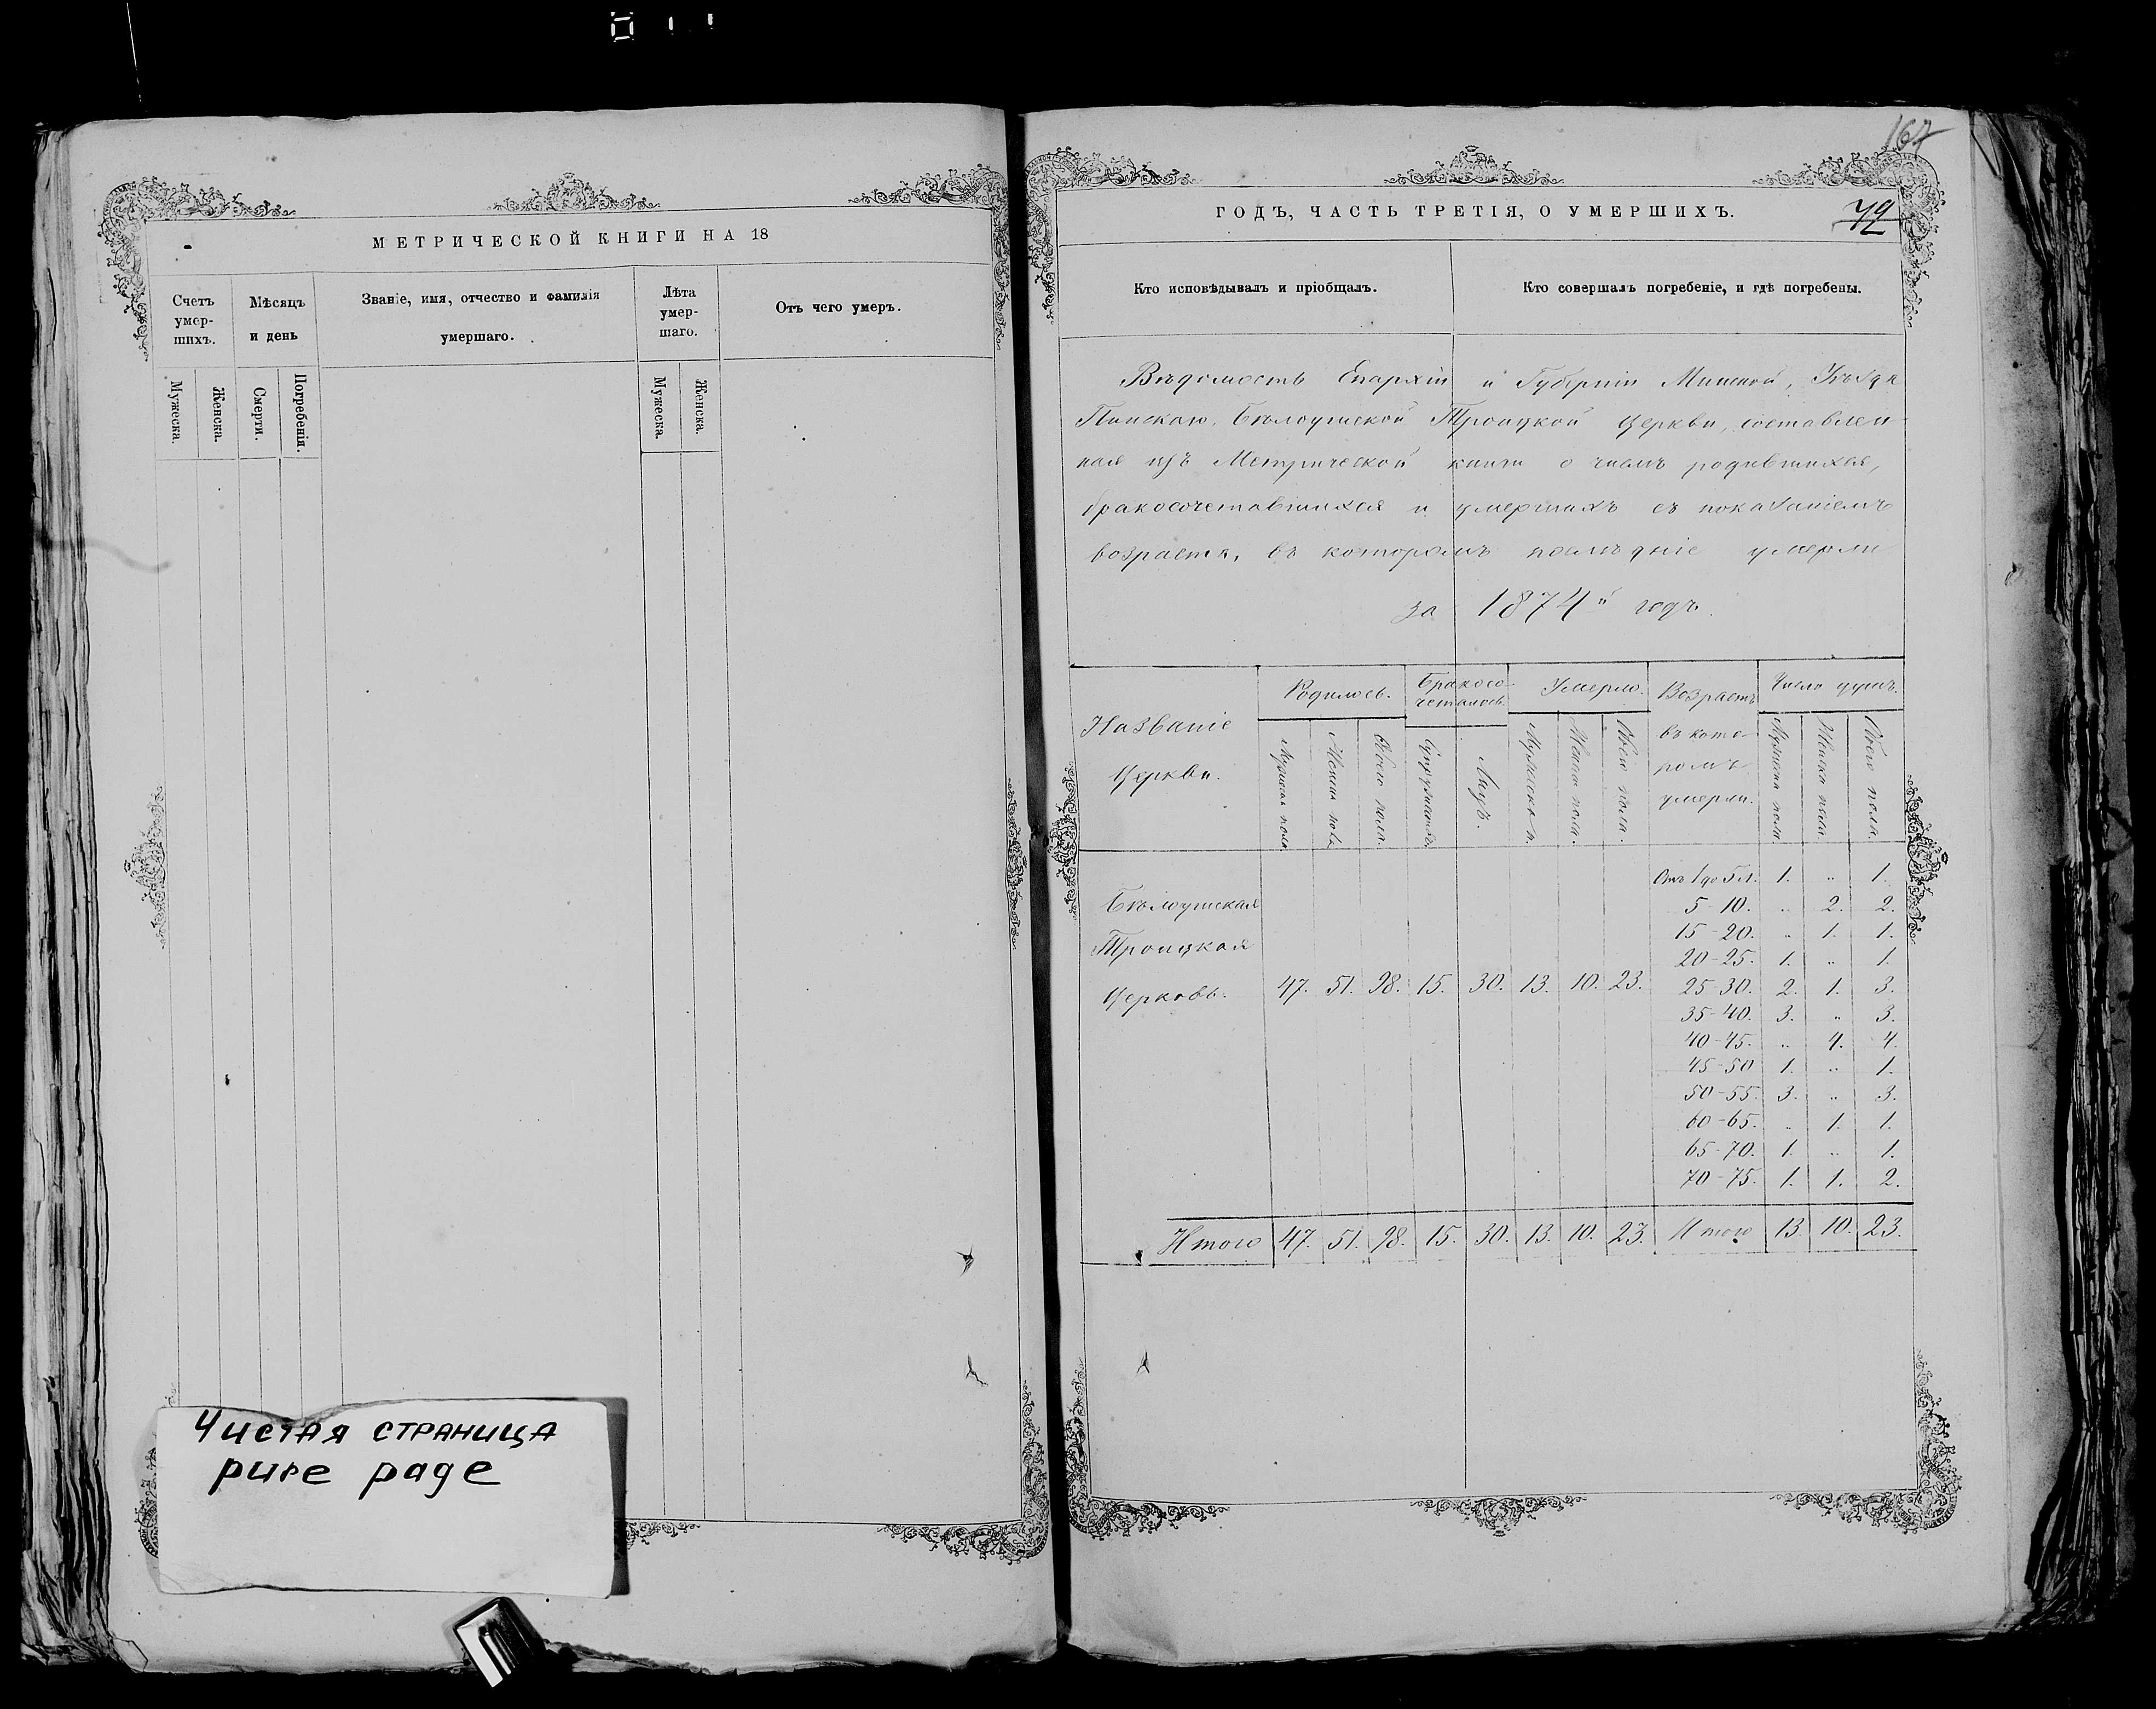 МЕТРИЧЕСКОЙ КНИГИ НА 18
Счетъ умер-шихъ.
Мѣсяцъ и день
Званіе, имя, отчество и фамилія умершаго.
Лѣта умер-шаго.
Отъ чего умеръ.
Мужеска.
Женска.
Смерти.
Погребенія.
Мужеска.
Женска.
Чистая страница
pure page
167
ГОДЪ, ЧАСТЬ ТРЕТІЯ, О УМЕРШИХЪ.
Кто исповѣдывалъ и пріобщалъ.
Кто совершалъ погребеніе, и гдѣ погребены.
Вѣдомость Епархіи и Губерніи Минской, Уѣзда
Пинскаго, Бѣлоушской Троицкой Церкви, составлен-
ная изъ Метрической книги о числѣ родившихся,
бракосочетавшихся и умершихъ съ показаніемъ
возраста, въ которомъ послѣдніе умерли
за 1874й годъ.
Названіе Церкви.
Родилось.
Бракосо-четалось.
Умерло.
Возрастъ въ кото-ромъ умерли.
Число душъ.
Мужеска пола.
Женска пола.
Обоего пола.
Супружествъ.
Лицъ.
Мужеска п.
Женска пола.
Обоего пола.
Мужеска пола.
Женска пола.
Обоего пола.
Бѣлоушская
Троицкая
Церковь. 47. 51. 98. 15. 30. 13. 10. 23.
Отъ 1 до 5 л. 1. .. 1.
5-10. .. 2. 2.
15-20. .. 1. 1.
20-25. 1. .. 1.
25-30. 2. 1. 3.
35-40. 3. .. 3.
40-45. .. 4. 4.
45-50 1. .. 1.
50-55. 3. .. 3.
60-65. .. 1. 1.
65-70. 1. .. 1.
70-75. 1. 1. 2.
Итого 47. 51. 98. 15. 30. 13. 10. 23. Итого 13. 10. 23.